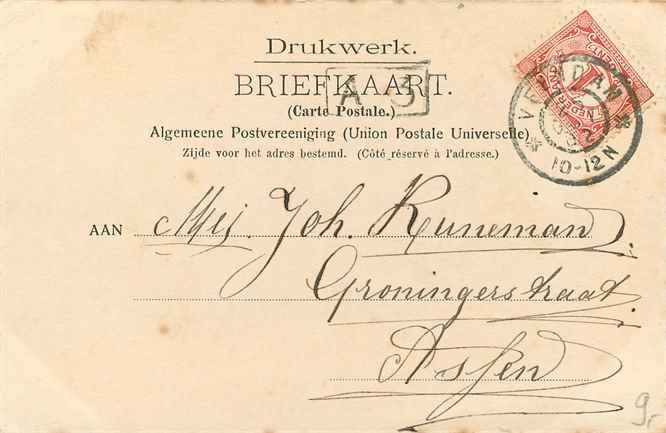 Drukwerk.
BRIEFKAART.
A 3
(Carte Postale.)
Algemeene Postvereeniging (Union Postale Universelle)
Zijde voor het adres bestemd. (Côté réservé à l'adresse.)
10-12 N
AAN Mej. Joh. Kuneman.
Groningerstraat.
Assen
9,-